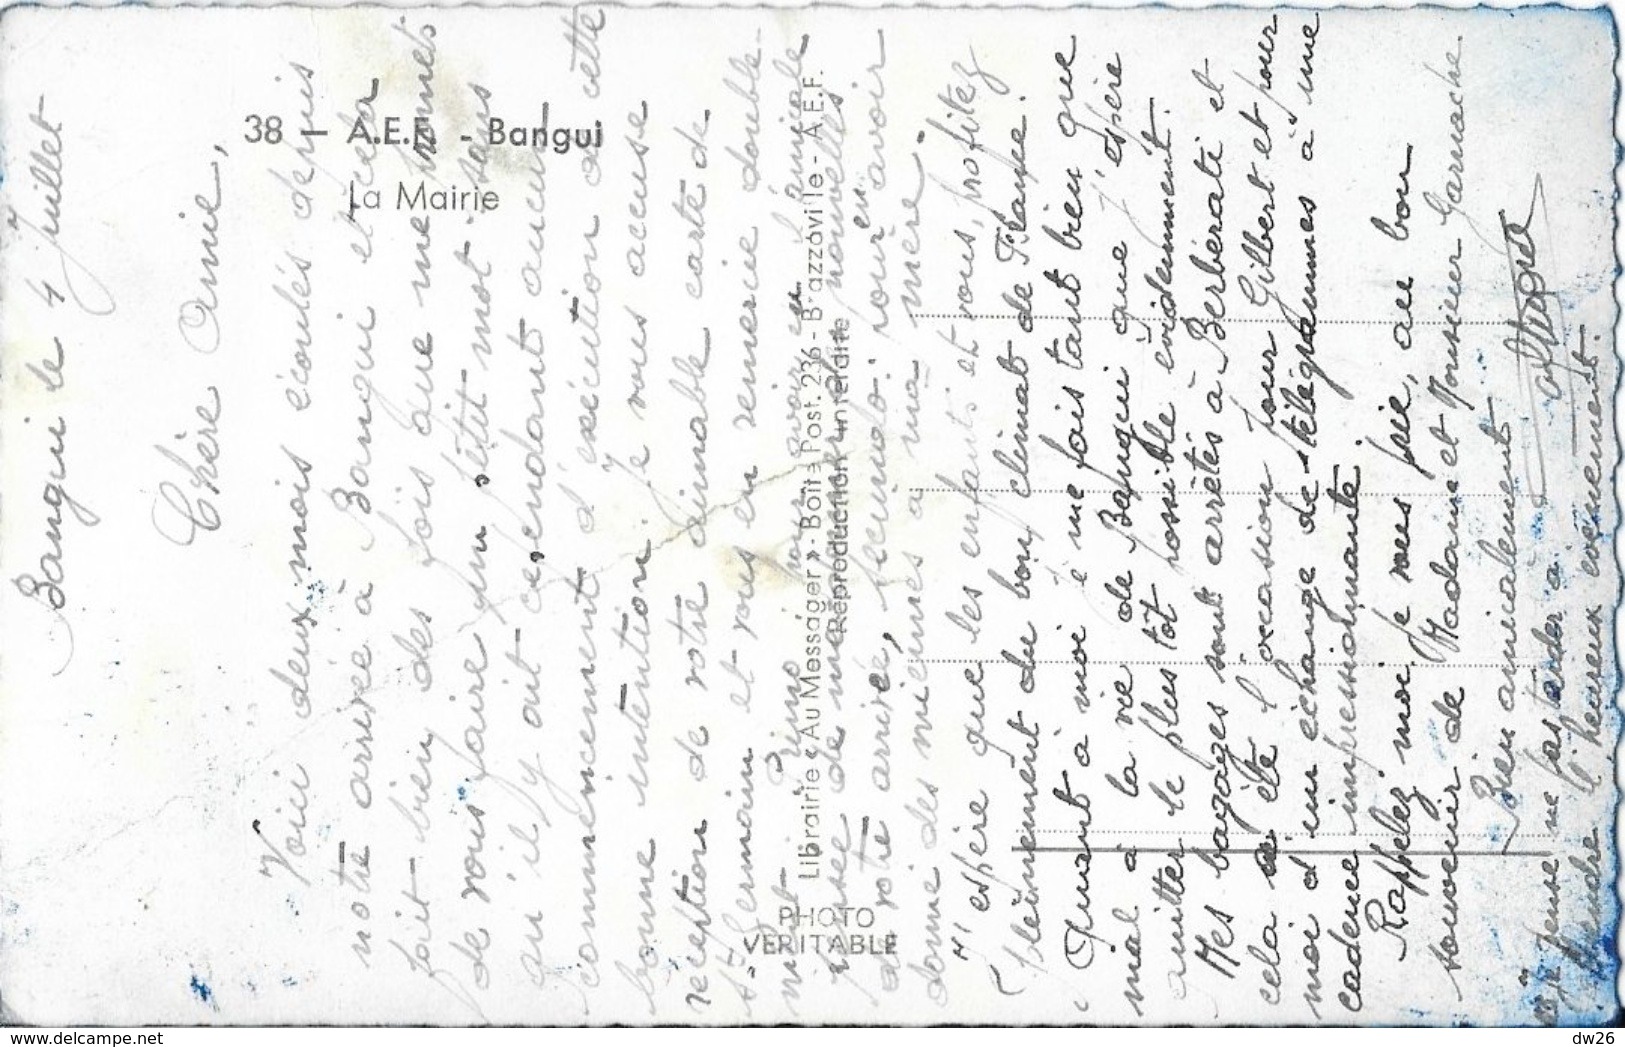 Bangui le 4 Juillet
Chère Amie,
Voici deux mois écoulés depuis
notre arrivée à Bangui et cela
fait bien des fois que me promets
de vous faire un petit mot sans
qu'il y ait cependant aucun
commencement d'exécution à cette
bonne intention. Je vous accuse
réception de votre aimable carte de
St Germain et vous en remercie double-
ment. Primo pour avoir eu l'amicale
pensée de me donner nouvelles
de votre arrivée, secundo: pour en avoir
donné des miennes à ma mère.
J'espère que les enfants et vous, profitez
pleinement du bon climat de France.
Quant à moi je me fais tant bien que
mal à la vie de Bangui que j'espère
quitter le plus tôt possible évidemment.
Mes bagages sont arrêtés à Berbérati et
cela a été l'occasion pour Gilbert et pour
moi d'un échange de télégrammes à une
cadence impressionnante.
Rappelez moi je vous prie, au bon
souvenir de Madame et Monsieur Garnache
Bien amicalement
je pense ne pas tarder à
apprendre l'heureux évènement.
38 - A.E.F. - Bangui
La Mairie
Librairie « Au Messager » - Boîte Post. 236 - Brazzaville - A.E.F.
Reproduction interdite
PHOTO
VÉRITABLE
delcampe.net
dw26